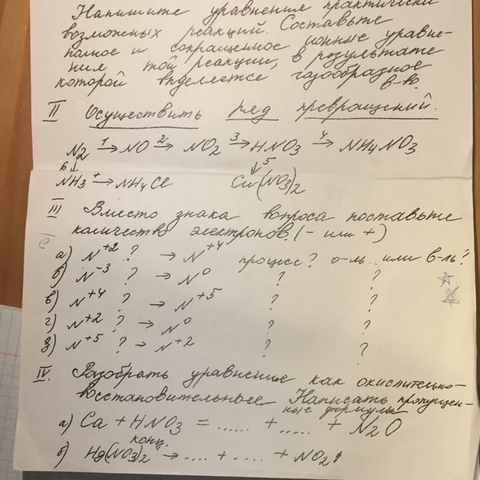 Напишите уравнения практически
возможных реакций. Составьте
полное и сокращенное ионные уравне-
ния той реакции, в результате
которой выделяется газообразное
в-во.
II Осуществить ряд превращений.
N2 1→ NO 2→ NO2 3→ HNO3 4→ NH4NO3
6↓ ↓5
NH3 1→ NH4Cl Cu(NO3)2
III Вместо знака вопроса поставьте
количество электронов. (- или +)
а) N+2 ? → N+4 процесс? о-ль или в-ль?
б) N-3 ? → N0 ? ?
в) N+4 ? → N+5 ? ?
г) N+2 ? → N0 ? ?
д) N+5 ? → N+2 ? ?
IV. Разобрать уравнение как окислительно-
восстановительное Написать пропущен-
ные формулы
а) Ca + HNO3 = ...... + ..... + N2O
конц.
б) Hg(NO3)2 → .... + .... + NO2↑